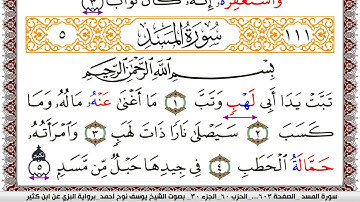 وَاسْتَغْفِرْهُ إِنَّهُ كَانَ تَوَّابًا ٣
١١١ سُورَةُ الْمَسَدِ ٥
بِسْمِ اللَّهِ الرَّحْمَٰنِ الرَّحِيمِ
تَبَّتْ يَدَا أَبِي لَهْبٍ وَتَبَّ ١ مَا أَغْنَىٰ عَنْهُ مَالُهُ وَمَا
كَسَبَ ٢ سَيَصْلَىٰ نَارًا ذَاتَ لَهَبٍ ٣ وَامْرَأَتُهُ
حَمَّالَةُ الْحَطَبِ ٤ فِي جِيدِهَا حَبْلٌ مِّن مَّسَدٍ ٥
سورة المسد _الصفحة ٦٠٣ ..._الحزب ٦٠ _الجزء ٣٠_ بصوت الشيخ يوسف نوح أحمد _برواية البزي عن ابن كثير